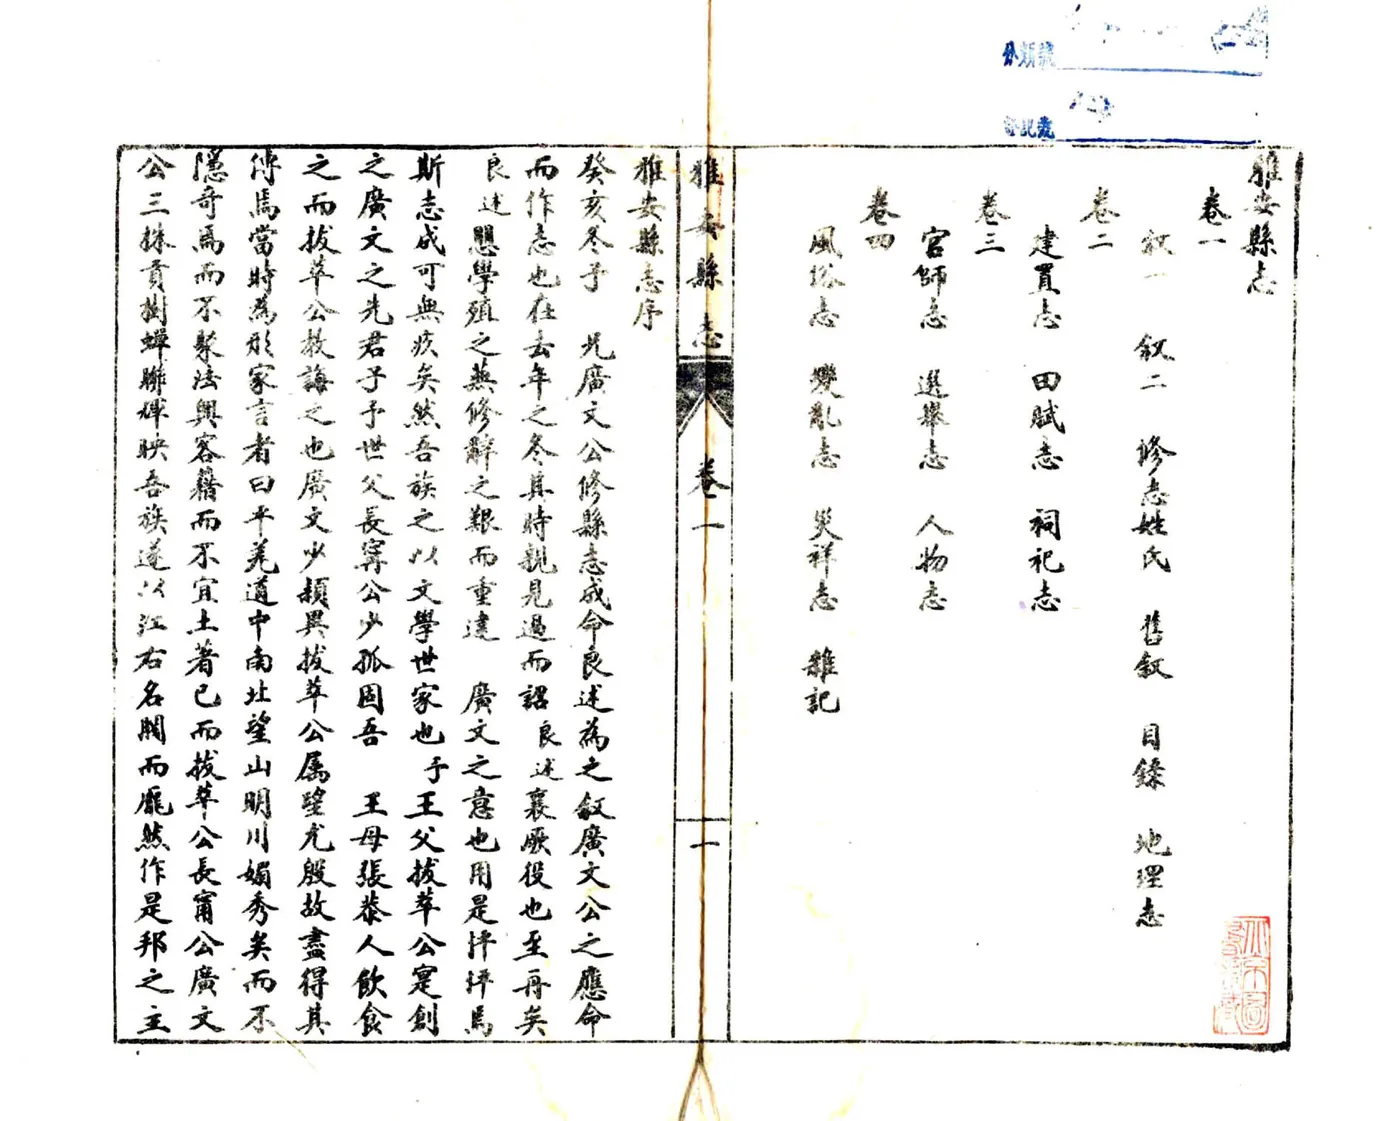 分類號
登記號
雅安縣志
卷一
敘一 敘二 修志姓氏 舊敘 目錄 地理志
卷二
建置志 田賦志 祠祀志
卷三
官師志 選舉志 人物志
卷四
風俗志 變亂志 災祥志 雜記
雅安縣志 卷一 一
雅安縣志序
癸亥冬予 兄廣文公修縣志成命良述為之敘廣文公之應命
而作志也在去年之冬其時親見過而詔良述襄厥役也至再矣
良述懸學殖之蕪修辭之艱而重違 廣文之意也用是抨抨焉
斯志成可無疚矣然吾族之以文學世家也予王父拔萃公寔創
之廣文之先君子予世父長寗公少孤固吾 王母張恭人飲食
之而拔萃公教誨之也廣文少穎異拔萃公属望尤殷故盡得其
傳焉當時為形家言者曰平羌道中南北望山明川媚秀矣而不
隱奇焉而不聚法興客籍而不宜土著已而拔萃公長甯公廣文
公三株貢樹蟬聯輝映吾族遂以江右名閥而龐然作是邦之主